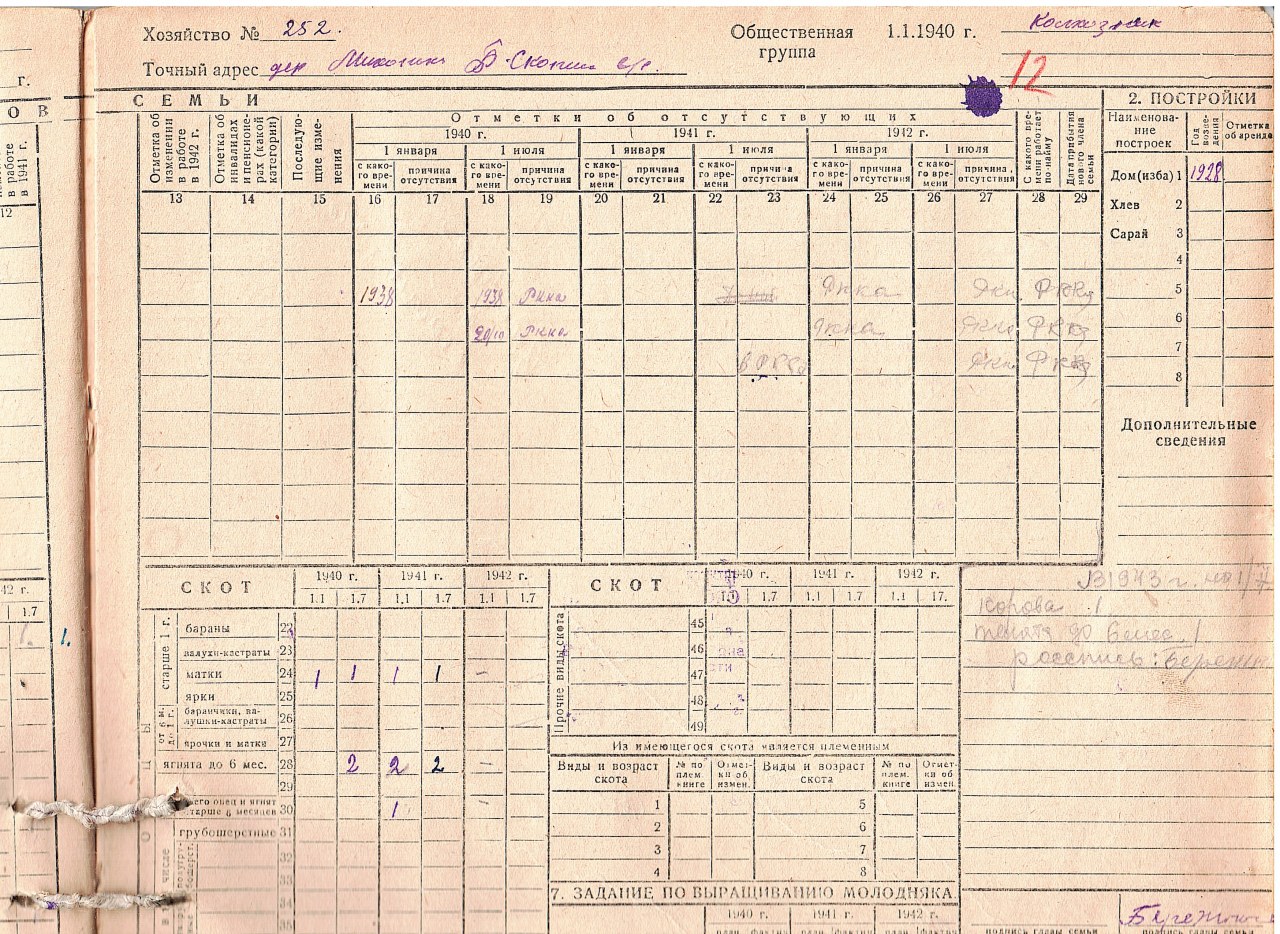 Хозяйство № 252.
Общественная группа 1.1.1940 г. Колхозник
Точный адрес дер
12
г.
О В
СЕМЬИ
работе
в 1941 г.
12
Отметка об изменении в работе в 1942 г.
Отметка об инвалидах и пенсионерах (какой категории)
Последующие изменения
Отметки об отсутствующих
1940 г. 1941 г. 1942 г.
1 января 1 июля 1 января 1 июля 1 января 1 июля
с какого времени причина отсутствия с какого времени причина отсутствия с какого времени причина отсутствия с какого времени причина отсутствия с какого времени причина отсутствия с какого времени причина отсутствия
С какого времени работает по найму
Дата прибытия нового члена семьи
13 14 15 16 17 18 19 20 21 22 23 24 25 26 27 28 29
1938 1938 Ркка Ркка РККа
Ркка Ркка РККа
в РККа РККа
2. ПОСТРОЙКИ
Наименование построек Год возведения Отметка об аренде
Дом(изба) 1 1928
Хлев 2
Сарай 3
4
5
6
7
8
Дополнительные сведения
42 г.
1.7
1. 1.
СКОТ 1940 г. 1941 г. 1942 г.
1.1 1.7 1.1 1.7 1.1 1.7
старше 1 г.
бараны 22
валухи-кастраты 23
матки 24 1 1 1 1 –
ярки 25
от 6 м. до 1 г.
баранчики, валушки-кастраты 26
ярочки и матки 27
ягнята до 6 мес. 28 2 2 2 –
29
всего овец и ягнят старше 6 месяцев 30 1 –
грубошерстные 31
32
33
34
35
СКОТ 1940 г. 1941 г. 1942 г.
1.1 1.7 1.1 1.7 1.1 17.
Прочие виды скота
45
46
47
48
49
Из имеющегося скота является племенным
Виды и возраст скота № по плем. книге Отметки об измен. Виды и возраст скота № по плем. книге Отметки об измен.
1 5
2 6
3 7
4 8
7. ЗАДАНИЕ ПО ВЫРАЩИВАНИЮ МОЛОДНЯКА
1940 г. 1941 г. 1942 г.
В 1943 г. на 1/7
корова 1
телята до 6 мес. 1
роспись:
подпись главы семьи подпись главы семьи